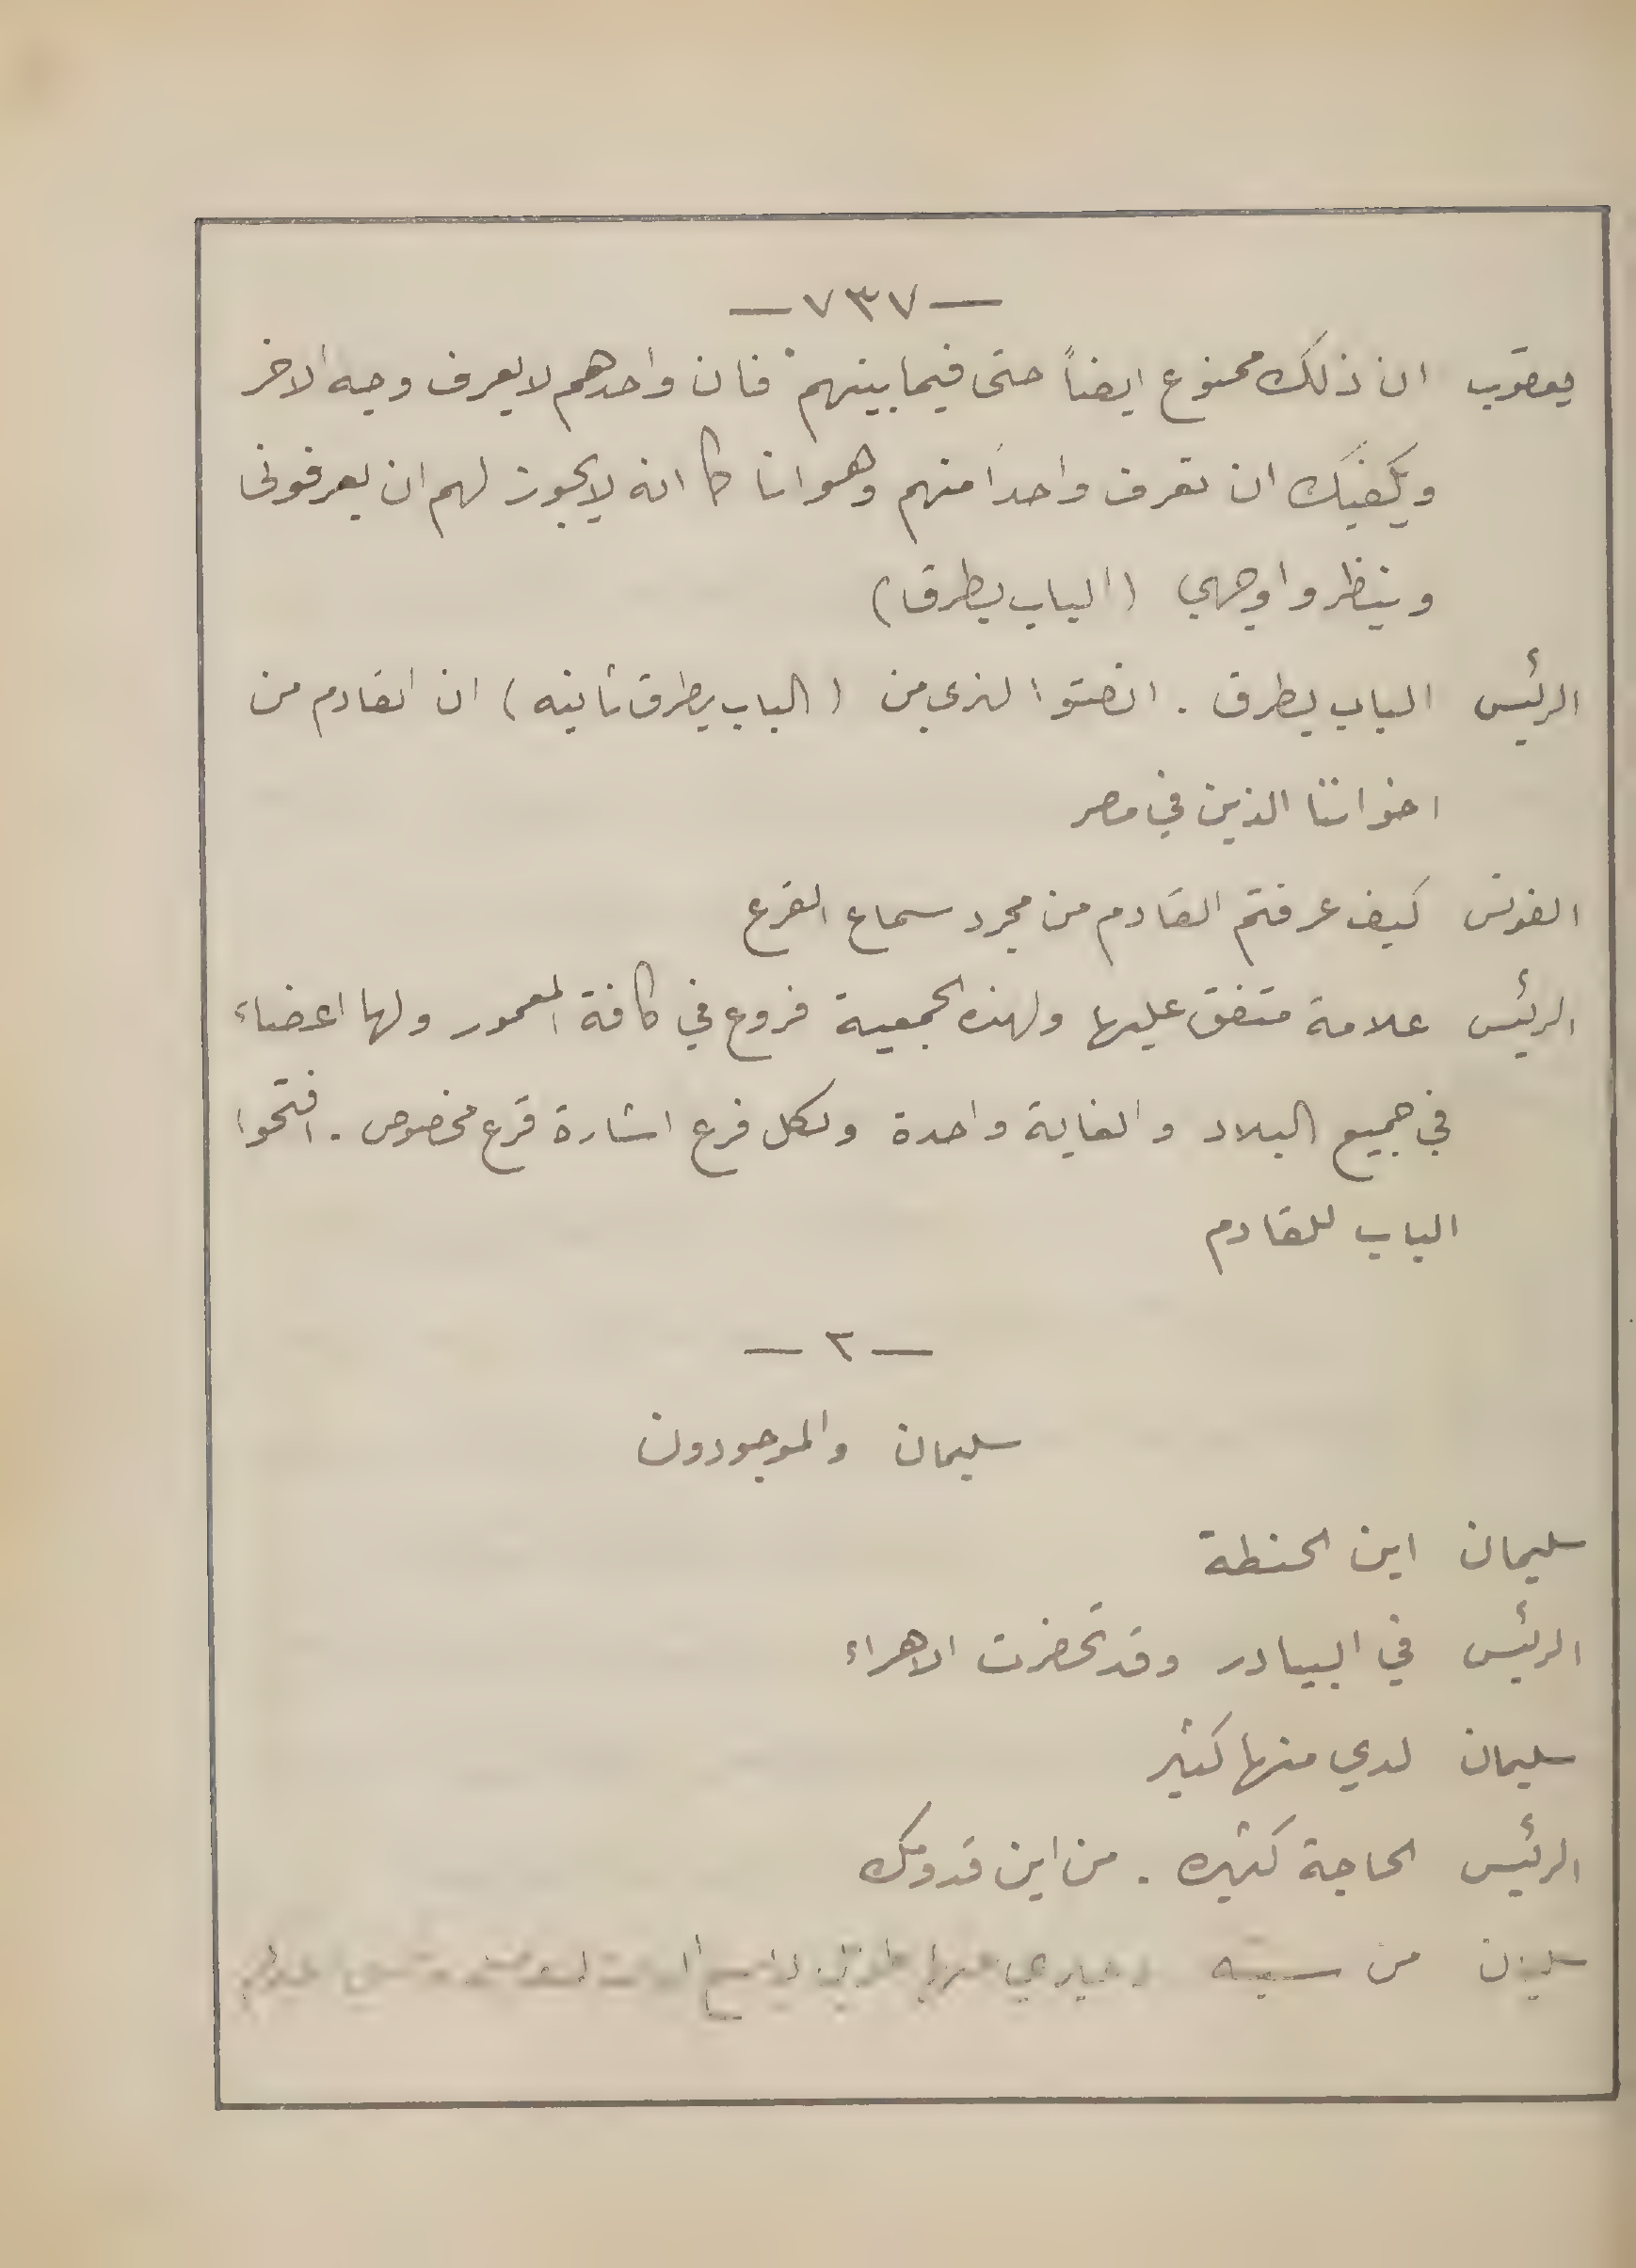 — ٧٣٧ —
يعقوب ان ذلك ممنوع ايضاً حتى فيما بينهم فان واحدهم لا يعرف وجه الاخر
ويكفيك ان تعرف واحداً منهم وهو انا كما انه لا يجوز لهم ان يعرفونى
وينظروا وجهي (الباب يطرق)
الرئيس الباب يطرق . انصتوا لنرى من (الباب يطرق ثانيه) ان القادم من
اخواننا الذين في مصر
الفونس كيف عرفتم القادم من مجرد سماع القرع
الرئيس علامة متفق عليها ولهذه الجمعية فروع في كافة المعمور ولها اعضاء
في جميع البلاد والغاية واحدة ولكل فرع اشارة قرع مخصوص . افتحوا
الباب للقادم
— ٢ —
سليمان والموجودون
سليمان اين الحنطة
الرئيس في البيادر وقد تحضرت الاهراء
سليمان لدي منها كثير
الرئيس الحاجة كثيره . من اين قدومك
سليمان من